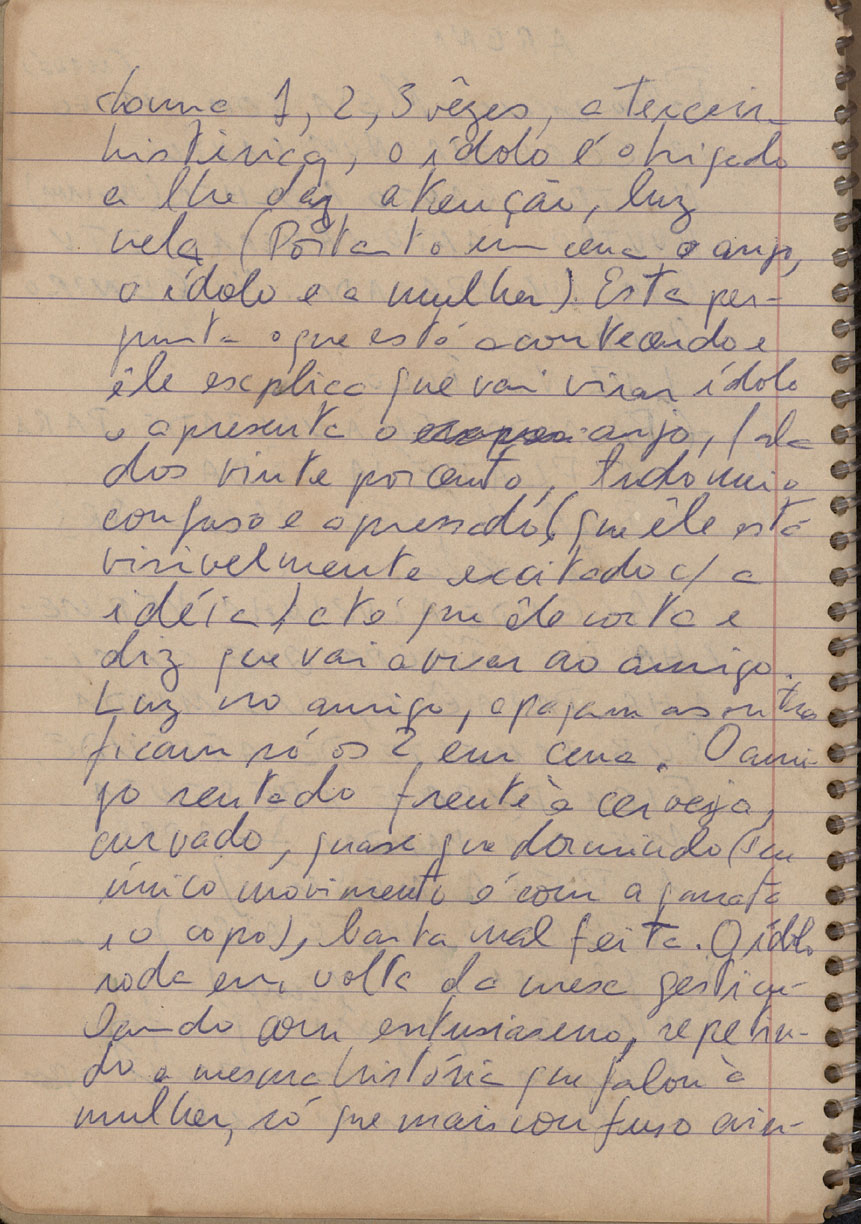 chama 1, 2, 3 vêzes, a terceira
histérica, o ídolo é obrigado
a lhe dar atenção, luz
nela (Portanto em cena o anjo,
o ídolo e a mulher). Esta per-
gunta o que está acontecendo e
êle explica que vai virar ídolo
e apresenta o anjo, fala
dos vinte por cento, tudo meio
confuso e apressado (que êle está
visivelmente excitado c/ a
idéia) até que êle corta e
diz que vai avisar ao amigo.
Luz no amigo, apagam as outras
ficam só os 2 em cena. O ami-
go sentado frente à cerveja,
curvado, quase que dormindo (seu
único movimento é com a garrafa
e o copo), barba mal feita. O ídolo
roda em volta da mesa gesticu-
lando com entusiasmo, repetin-
do a mesma história que falou à
mulher, só que mais confuso ain-